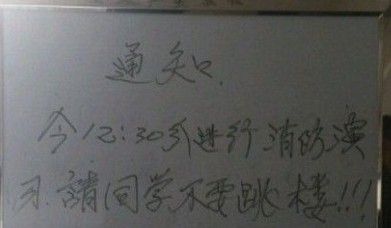 通知
今12:30分进行消防演
习.請同学不要跳楼!!!